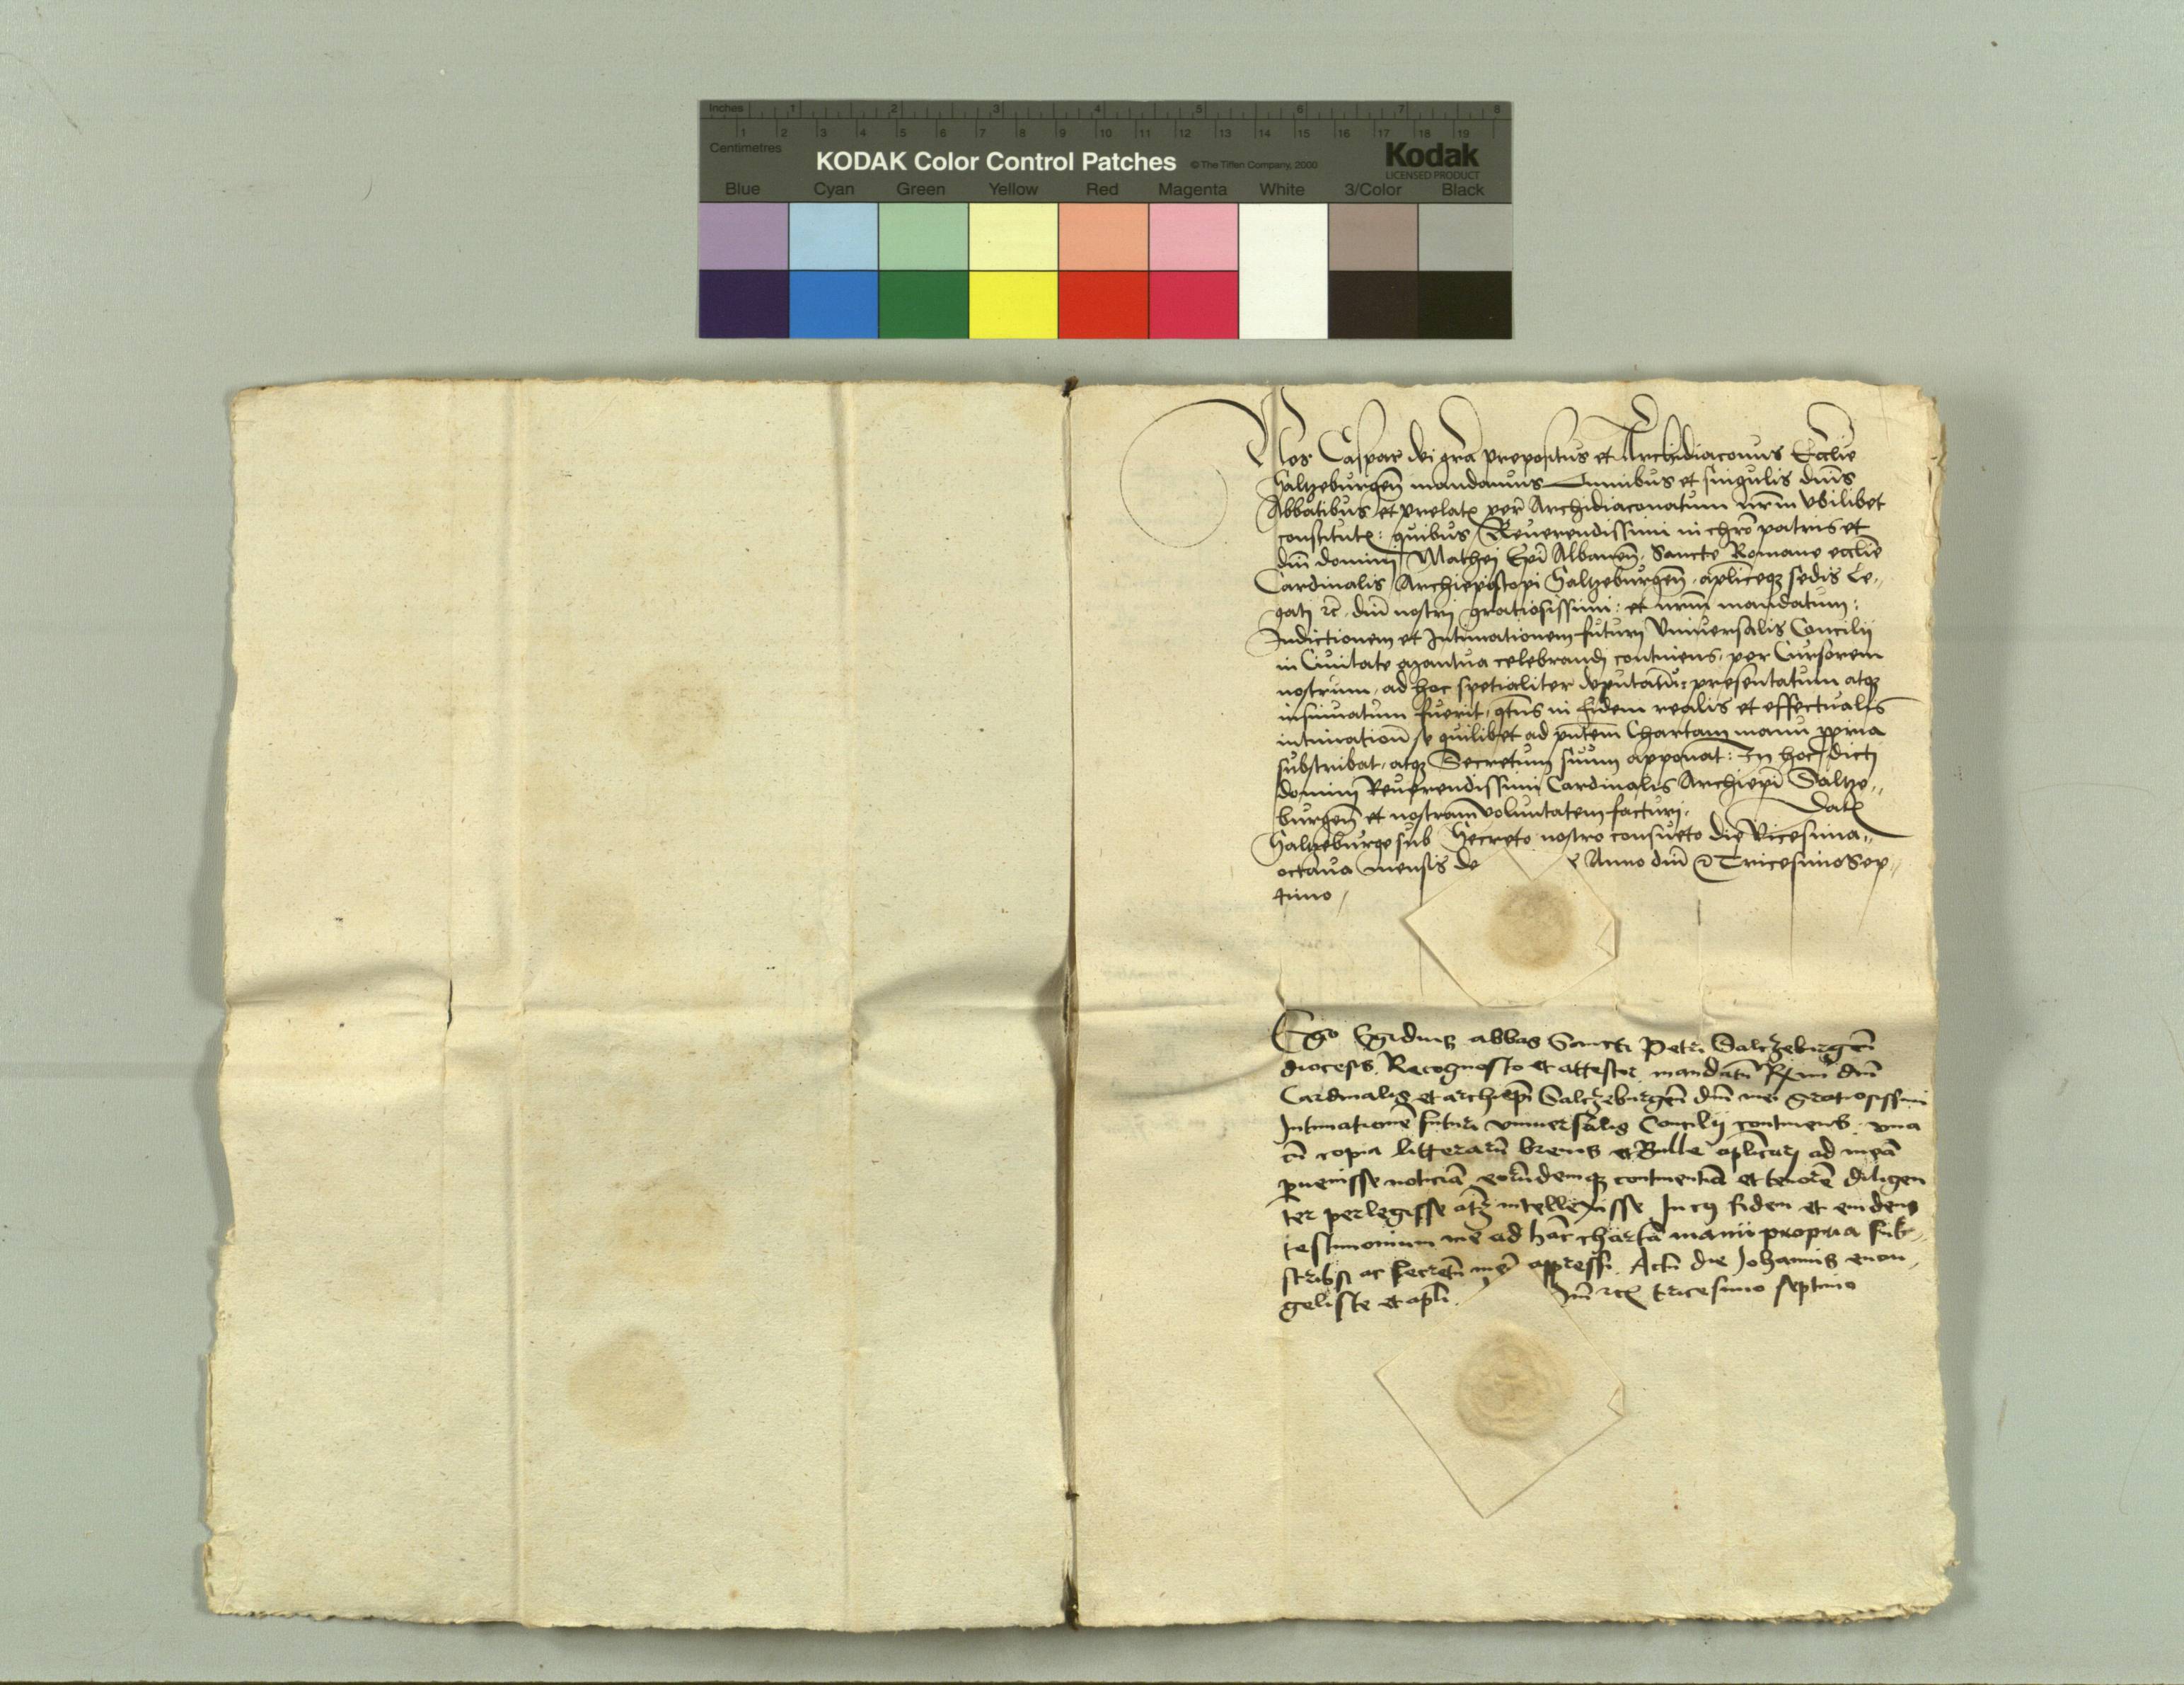 Inches 1 2 3 4 5 6 7 8
1 2 3 4 5 6 7 8 9 10 11 12 13 14 15 16 17 18 19
Centimetres
KODAK Color Control Patches © The Tiffen Company, 2000 Kodak
LICENSED PRODUCT
Blue Cyan Green Yellow Red Magenta White 3/Color Black
Nos Caspar dei gr̄a prepositus et Archidiaconus Eccl̄ie
Saltzeburgen̄ mandamus Omnibus et singulis dn̄is
Abbatibus et prelatꝭ per Archidiaconatum nr̄m vbilibet
constitutꝭ: quibus Reuerendissimi in chr̄o patris et
dn̄i domini Mathei Ep̄i Albanen̄, Sancte Romane eccl̄ie
Cardinalis Archiepiscopi Saltzeburgen̄, apl̄iceqꝫ sedis Le,,
gati ꝛc̄. dn̄i nostri gratiosissimi: et nr̄um mandatum:
Indictionem et Intimationem futuri Vniuersalis Concilij
in Ciuitate mantua celebrandi continens, per Cursorem
nostrum, ad hoc spetialiter deputatū: presentatum atqꝫ
insinuatum fuerit, qt̄us in fidem realis et effectualis
intimation̄ se quilibet ad pn̄tem Chartam manu ꝓpria
substribat, atqꝫ Secretum suum apponat: In hoc dicti
domini Reuerendissimi Cardinalis Archiep̄i Saltze,,
burgen̄ et nostram voluntatem facturi. Datꝭ
Saltzeburge sub Secreto nostro consueto die Vicesima,,
octaua mensis de Anno dn̄i ꝛc Tricesimo Sep,,
timo /
Ego Egidius abbas Sancti Petri Salczeburgen̄
diocesis. Recognosco et attestor mandatū Rx̄mi dn̄i
Cardinalis et archiep̄i Salczeburgen̄ dn̄i mei gratiosissimi
Intimationē futuri vniuersalis Concilij continens. vna
cū copia litterarū breuis et Bulle apl̄icarꝫ ad meā
ꝑuenisse noticiā eorūdemqꝫ continentiā et tenorē diligen
ter perlegisse atqꝫ intellexisse In cꝯ fidem et euidens
testimonium me ad hāc chartā manu propria sub,,
scribsi ac secretū meū appressi. Actū die Johannis euan,
geliste et apl̄i. ꝛcꝭ tricesimo septimo